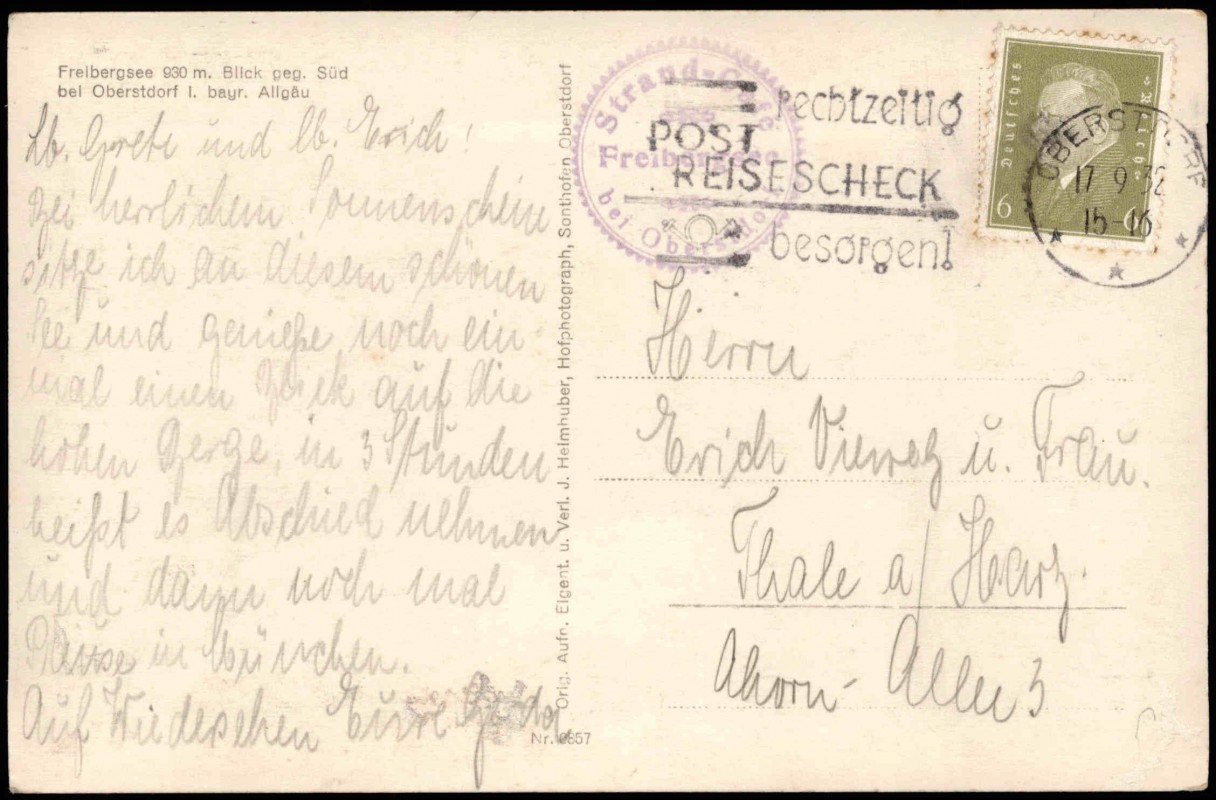 Freibergsee 930 m. Blick geg. Süd
bei Oberstdorf i. bayr. Allgäu
Lb. Grete und lb. Erich!
Bei herrlichem Sonnenschein
sitze ich an diesem schönen
See und genieße noch ein-
mal einen Blick auf die
hohen Berge, in 3 Stunden
heißt es Abschied nehmen
und dann noch mal
Pause in München.
Auf Wiedersehen Eure
Orig. Aufn. Eigent. u. Verl. J. Heimhuber, Hofphotograph, Sonthofen Oberstdorf
Nr. 9857
Strand-Café
Freibergsee
bei Oberstdorf
rechtzeitig
POST
REISESCHECK
besorgen!
Deutsches
Reich
6 6
OBERSTDORF
17.9.32
15-16
Herrn
Erich Vieweg u. Frau.
Thale a/ Harz.
Ahorn-Allee 3